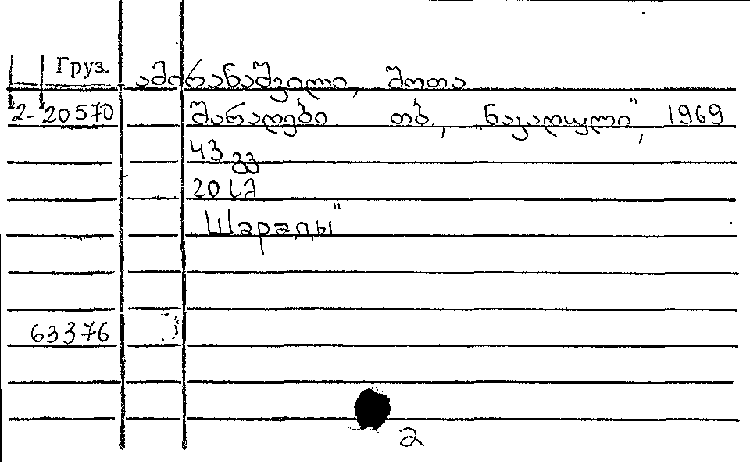 Груз. ამირანაშვილი, შოთა
2-20570 შარადები თბ, „ნაკადული", 1969
43 გვ
20 სმ
„Шарады"
63376
2